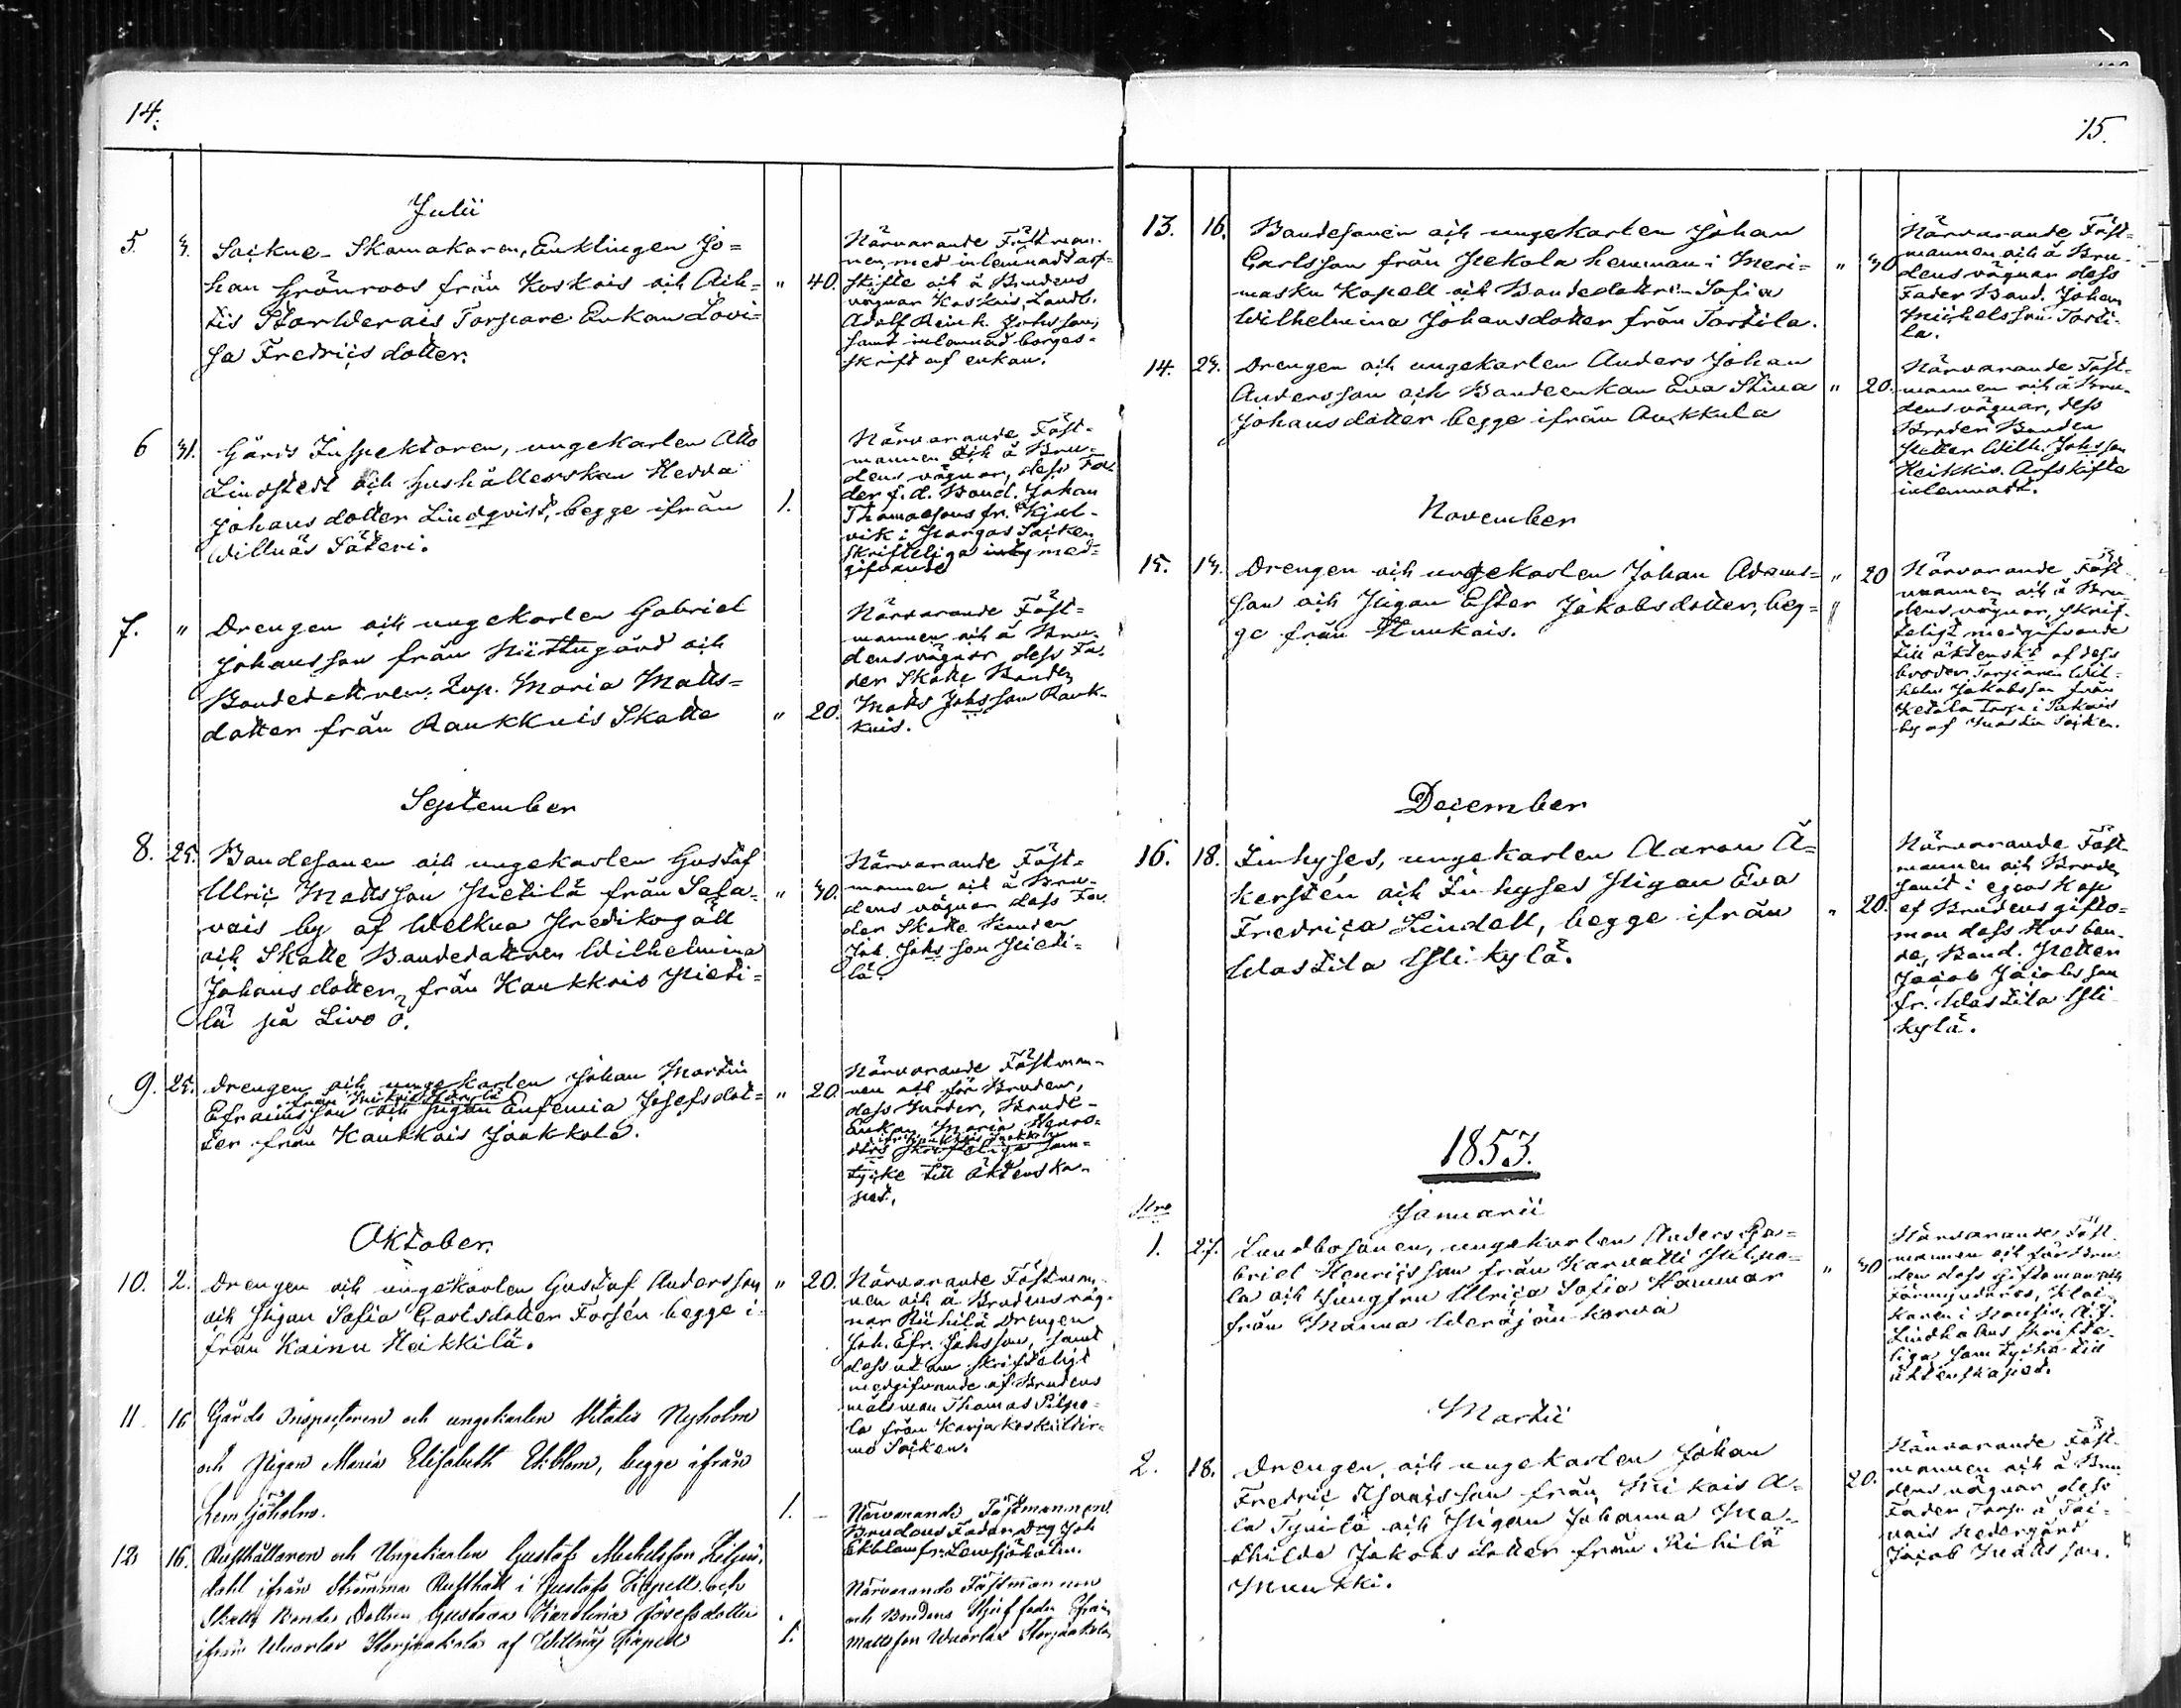 14.
Julii
5. 4. Sockne-Skomakaren, Enklingen Jo=
han Grönroos från Koskois och Aik=
tis Storwerais Torpare Enkan Lovi=
sa Fredrics dotter.
" 40.
Närvarande Fästman-
nen, med inlemnadt arf-
skifte och å Brudens
vägnar Koskois Landb.
Adolf Reinh. Johsson,
samt inlemnad borges-
skrift af enkan.
6 31. Gårds Inspektoren, ungekarlen Otto
Lindstedt och hushållerskan Hedda
Johansdotter Lindqvist, begge ifrån
Willnäs Säteri.
1.
Närvarande Fäst-
mannen och å Bru-
dens vägnar, dess Fa-
der f.d. Bond. Johan
Thomassons fr. Kjel-
vik i Pargas Socken
skrifteliga med-
gifvande
7. " Drengen och ungekarlen Gabriel
Johansson från Niittugård och
Bondedottren Maria Matts=
dotter från Raukkuis Skatte
" 20.
Närvarande Fäst=
mannen och å Bru-
dens vägnar dess Fa-
der Skatte Bonden
Matts Johsson Rauk-
kuis.
September
8. 25. Bondesonen och ungekarlen Gustaf
Ulric Mattsson Pietilä från Sala-
vais by af Welkua Predikogäll
och Skatte Bondedottren Wilhelmina
Johans dotter från Kaukkois Pieti=
lä på Livo ö.
" 40.
Närvarande Fäst=
mannen och å Bru-
dens vägnar dess Fa-
der Skatte Bonden
Joh. Johsson Pieti=
lä.
9. 25. Drengen och ungekarlen Johan Martin
Efraimsson och Pigan Eufemia Josefsdot=
ter från Kaukkois Jaakkola.
" 20.
Närvarande Fästman-
nen och för Bruden,
dess Moder, Bonde-
Enkan Maria Henrs-
dtrs skrifteliga sam-
tycke till Äktenska-
pet.
Oktober.
10. 2. Drengen och ungekarlen Gustaf Andersson
och Pigan Sofia Carlsdotter Forsén begge i-
från Kainu Heikkilä.
" 20.
Närvarande Fästman-
nen och å Brudens väg-
nar Riihilä Drengen
Joh. Efr. Johsson, samt
dess utom skrifteligt
medgifvande af Brudens
målsman Thomas Pilpo-
la från
mo Socken.
11. 16 Gårds Inspectoren och ungekarlen Vitalis Nyholm
och Pigan Maria Elisabeth Ekblom, begge ifrån
Lemsjöholm.
1. –
Närvarande Fästmannen
Brudens Fader Drg Joh
Ekblom fr. Lemsjöholm.
12 16. Rusthållaren och Ungekarlen Gustaf Michelsson Liljen-
dahl ifrån Strömma Rusthåll i Gustafs Kapell och
Skatte Bonde Dottren Gustava Karolina Josefsdotter
ifrån Uuorlax Storjaakola af Willnäs Kapell
1.
Närvarande Fästmannen
och Brudens Styffader Efraim
Mattsson Uuorlax Storjaakola
15.
13. 16. Bondesonen och ungekarlen Johan
Carlsson från Pekola hemman i Meri=
masku Kapell och Bondedottren Sofia
Wilhelmina Johansdotter från Tortila.
" 40
Närvarande Fäst=
mannen och å Bru-
dens vägnar dess
Fader Bond. Johan
Michelsson Torti-
la.
14. 24. Drengen och ungekarlen Anders Johan
Andersson och Bondeenkan Eva Stina
Johansdotter begge ifrån Aukkula
" 20.
Närvarande Fäst-
mannen och å Bru-
dens vägnar, dess
Broder Bonden
Petter Wilh. Johsson
Heikkis. Arfskifte
inlemnadt.
November
15. 14. Drengen och ungekarlen Johan Adams=
son och Pigan Ester Jakobsdotter, beg=
ge från Kuukais.
" 20
Närvarande Fäst-
mannen och å Bru-
dens vägnar, skrif-
teligt medgifvande
till äktenskp af dess
broder Torparen Wil-
helm Jakobsson från
Ketola Torp i
by af Masku Socken.
December
16. 18. Inhyses, ungekarlen Aaron Å=
kerstén och Inhyses Pigan Eva
Fredrica Lindell, begge ifrån
Wastila Ylikylä.
" 20.
Närvarande Fäst-
mannen och Bruden
samt i egenskap
af Brudens gifto=
man dess Husbon-
de, Bond. Petter
Jacob Jacobsson
fr. Wastila Yli-
kylä.
1853.
Nro
Januarii
1. 27. Landbosonen, ungekarlen Anders Ga=
briel Henricsson från Karvatti Pilpo-
la och Jungfru Ulrica Sofia Hammar
från Nanna Weräjän korva
" 40
Närvarande Fäst-
mannen och för Bru-
den dess Giftoman och
Förmyndares, Kloc-
karen i Nousis, A.J.
Lindholms skrifte-
liga samtycke till
äktenskapet.
Martii
2. 18. Drengen och ungekarlen Johan
Fredric Isacsson från Mikois A-
la Tynilä och Pigan Johanna Ma-
thilda Jakobsdotter från Riihilä
Munkki.
20.
Närvarande Fäst-
mannen och å Bru-
dens vägnar dess
Fader Torp. å Toi-
vais Nedergård
Jacob Mattsson.